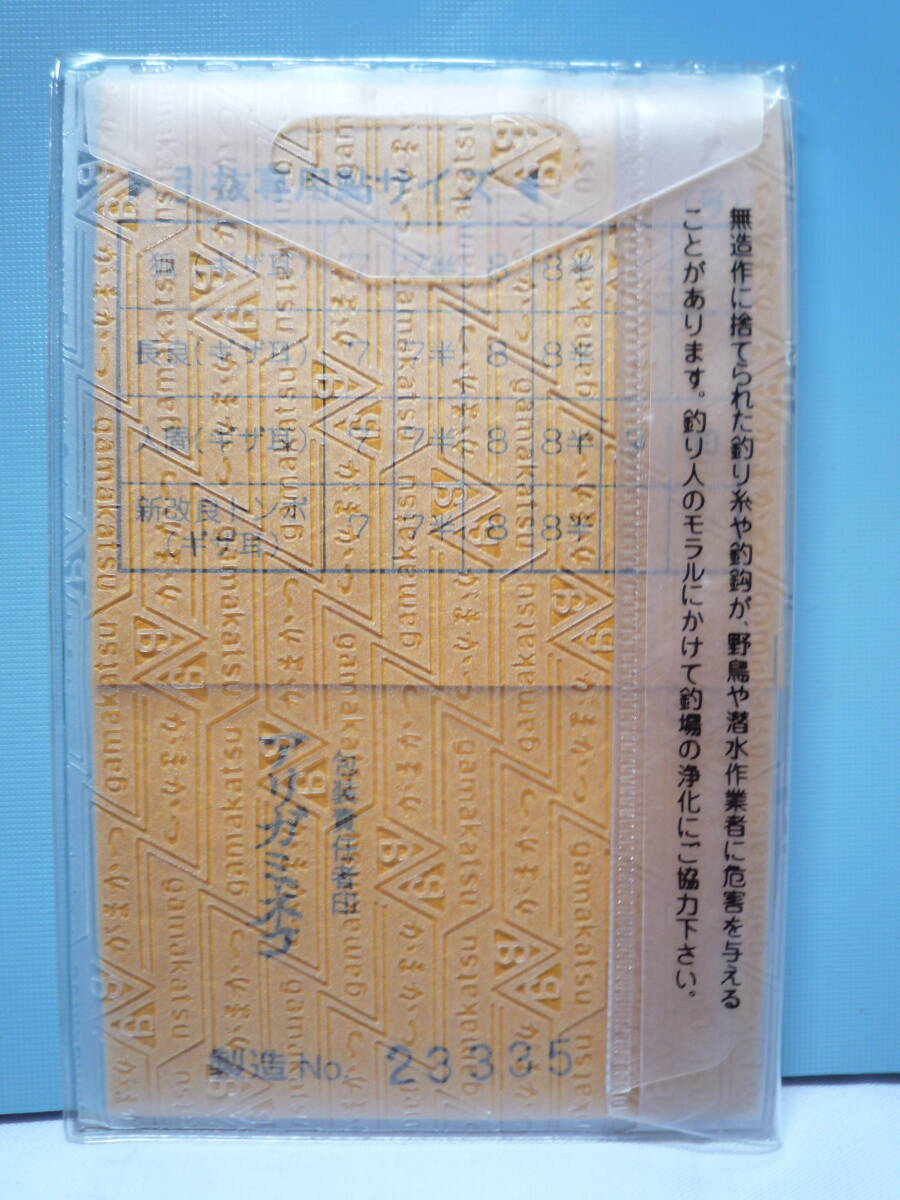 引抜専用鈎サイズ
狐(ギザ耳) 7 7半 8 8半
長良(ギザ耳) 7 7半 8 8半
7 7半 8 8半
新改良トンボ(ギザ耳) 7 7半 8 8半
無造作に捨てられた釣り糸や釣鈎が、野鳥や潜水作業者に危害を与える
ことがあります。釣り人のモラルにかけて釣場の浄化にご協力下さい。
包装責任者印
製造No. 23335
gamakatsu
がまかつ